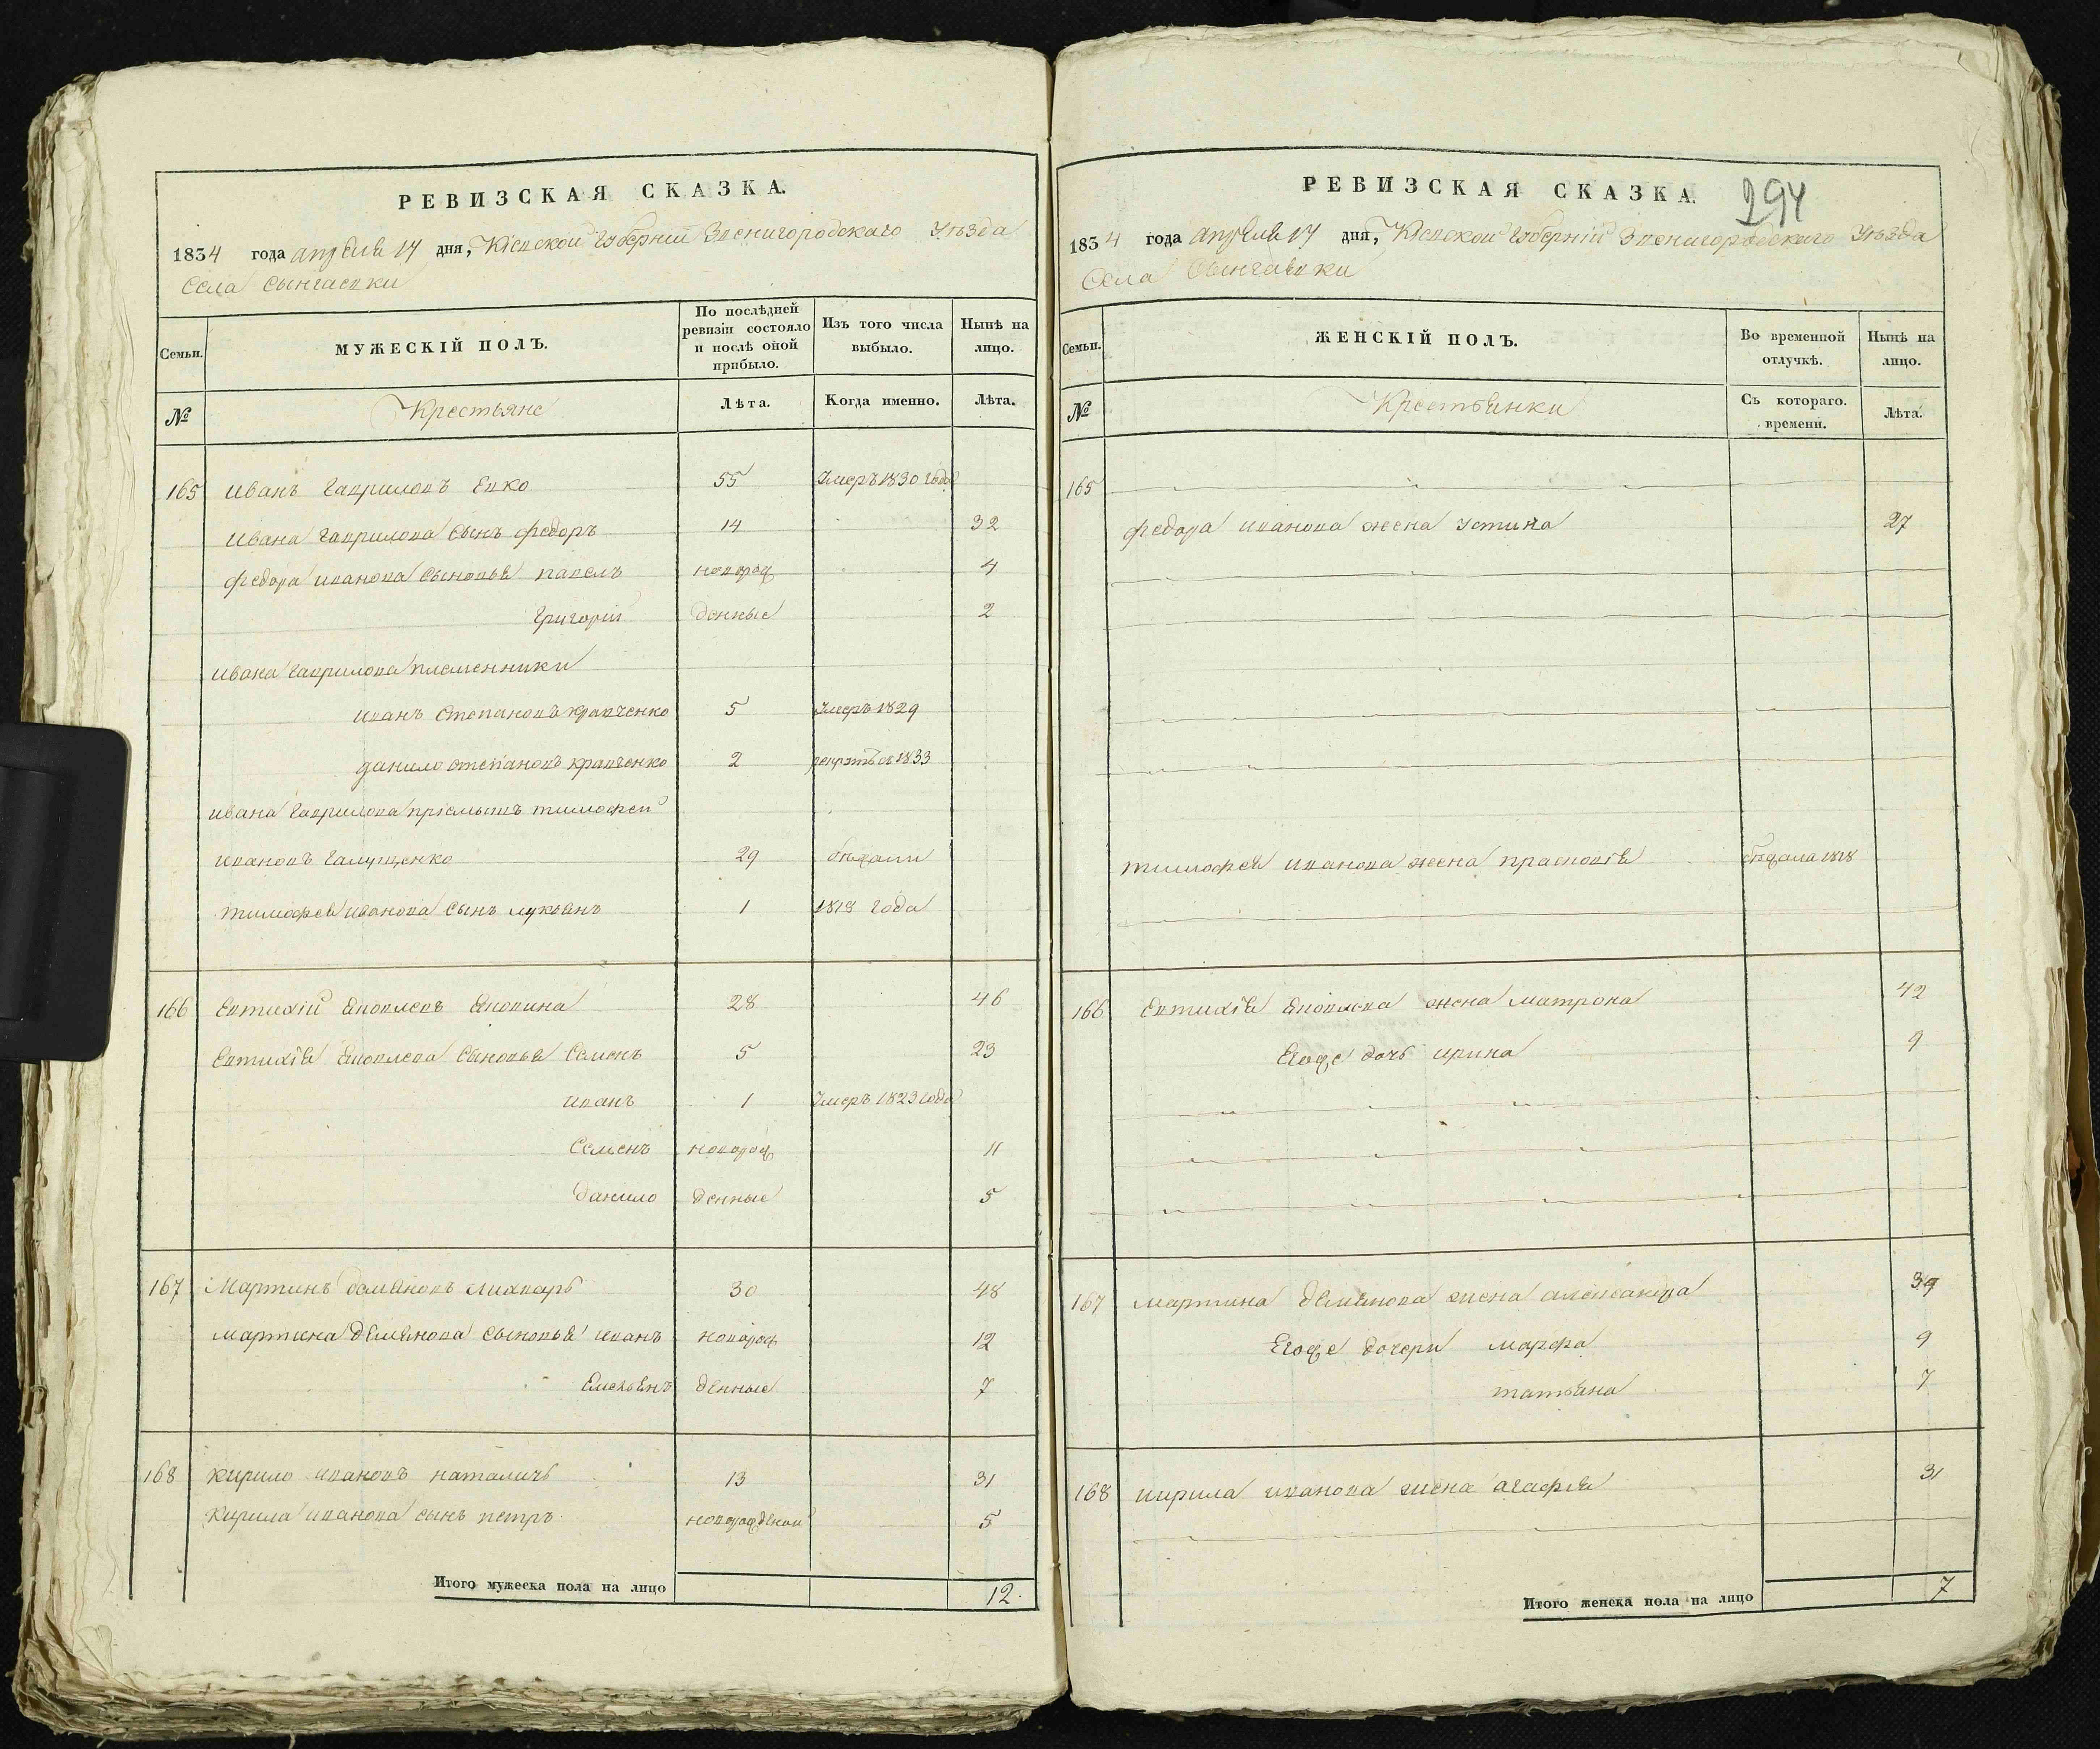 РЕВИЗСКАЯ СКАЗКА.
1834 года апреля 17 дня, Кіевской Губерніи Звенигородскаго Уѣзда
Села
Семьи.
МУЖЕСКІЙ ПОЛЪ.
По послѣдней ревизіи состояло и послѣ оной прибыло.
Изъ того числа выбыло.
Нынѣ на лицо.
№
Крестьяне
Лѣта.
Когда именно.
Лѣта.
165 иванъ Гавриловъ Евко 55 Умеръ 1830 года
ивана Гаврилова сынъ федоръ 14 32
федора иванова сыновья павелъ новорож 4
Григорій денные 2
ивана Гаврилова племенники
иванъ Степановъ кравченко 5 Умеръ 1829
данило степановъ кравченко 2 1833
ивана Гаврилова пріемышъ тимофей
ивановъ Галущенко 29 бѣжали
тимофея иванова сынъ лукьянъ 1 1818 года
166 Евтихій 28 46
Евтихія сыновья Семенъ 5 23
иванъ 1 Умеръ 1823 года
Семенъ новорож 11
данило денные 5
167 Мартинъ демяновъ лихваръ 30 48
мартина демянова сыновья иванъ новорож 12
Емельянъ денные 7
168 кирило ивановъ наталичъ 13 31
кирила иванова сынъ петръ новорожденой 5
Итого мужеска пола на лицо 12.
РЕВИЗСКАЯ СКАЗКА.
294
1834 года апреля 17 дня, Кіевской Губерніи Звенигородскаго Уѣзда
Села
Семьи.
ЖЕНСКІЙ ПОЛЪ.
Во временной отлучкѣ.
Нынѣ на лицо.
№
Крестьянки
Съ котораго. времени.
Лѣта.
165
федора иванова жена устина 27
тимофея иванова жена прасковія бѣжала 1818
166 Евтихія жена матрона 42
Егоже дочь ирина 9
167 мартина демянова жена александра 39
Егоже дочери марфа 9
татьяна 7
168 кирила иванова жена агафія 31
Итого женска пола на лицо 7